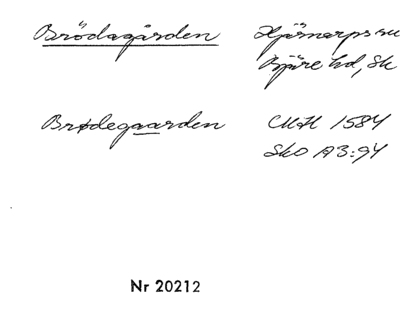 Brödagården Hjärnarps sn
Bjäre hd, Sk
Brødegaarden CMH 1584
Sko A3:94
Nr 20212